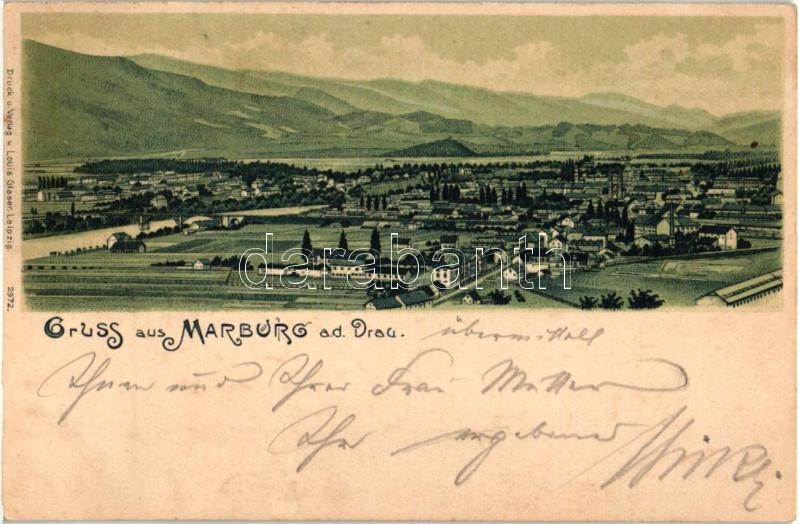 Druck u. Verlag v. Louis Glaser, Leipzig. 2972.
darabanth
Gruss aus Marburg a.d. Drau. übermittelt
Ihnen und Ihrer Frau Mutter
Ihr ergebener